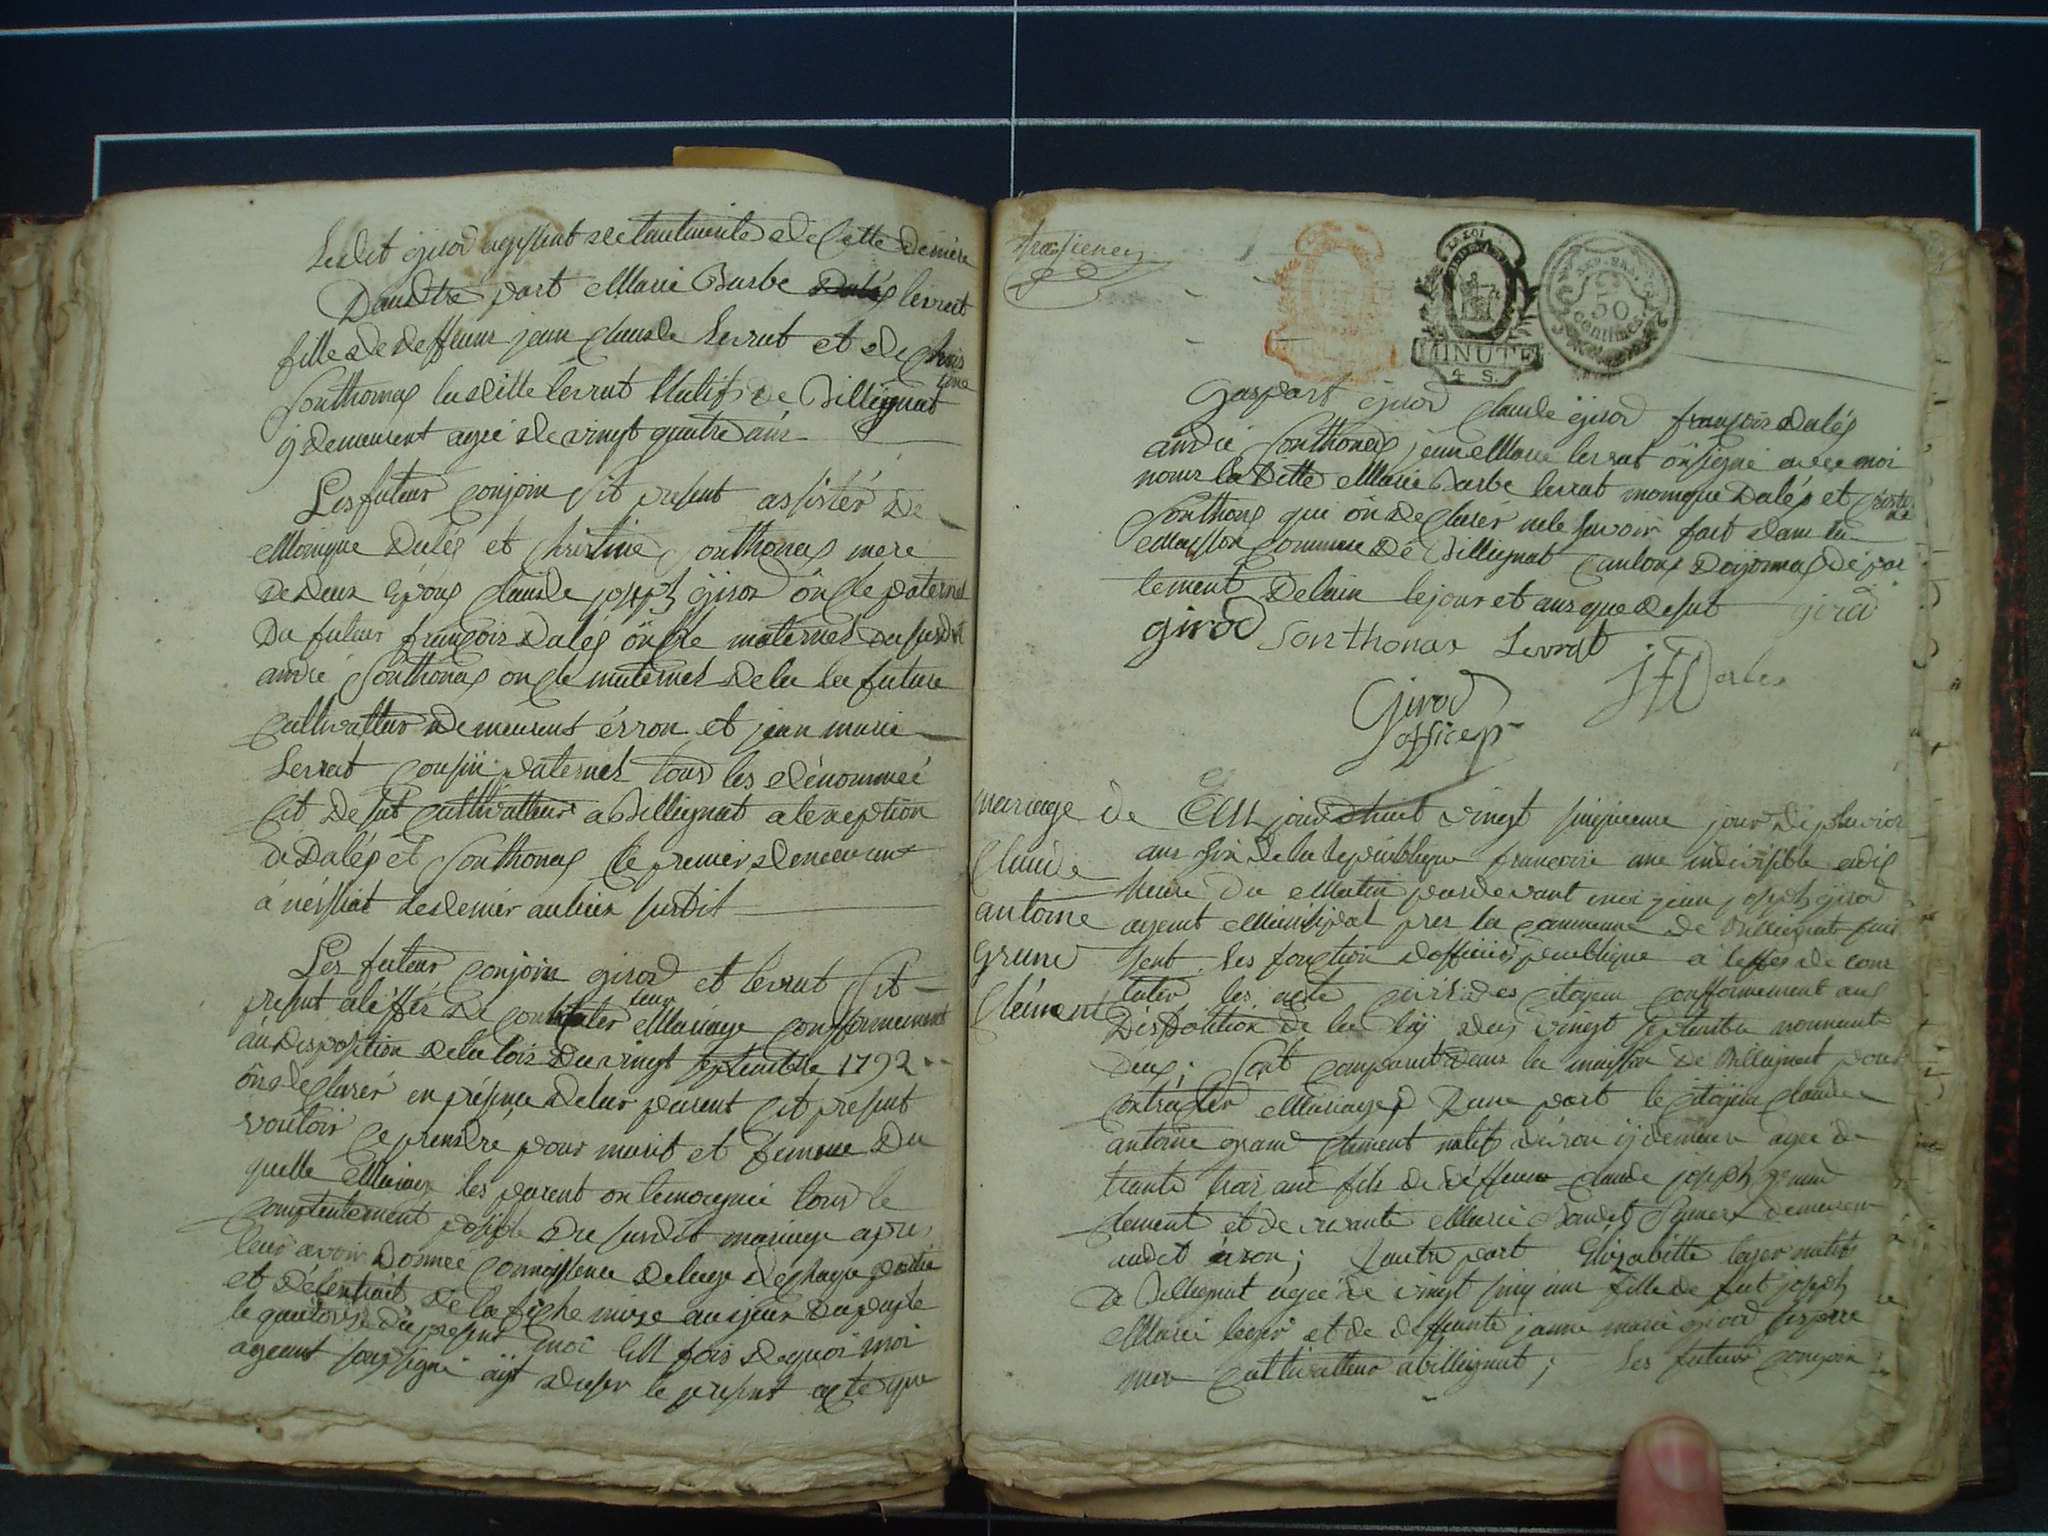 Ledit girod agissant de Cette derniere
Dautre part Marie Barbe Dalés levrat
fille de deffeunt jean Claude Levrat et de Chris
tine
Sonthonas la ditte levrat Natif de Billiignat
y demeurent agée de vingt quatre ans
Les futeur Conjoin sit present assistér De
Monique Dalés et Christine Sonthonas mere
De deux Epous Claude joseph girod oncle paternel
Du futeur françois Dalés oncle maternel du susdit
andré Sonthonas oncle maternel de la la future
Cultivatteur demeurent érron et jean marie
Levrat Cousin paternel tous les dénommeé
Cit desut Cultivatteur a Billiignat alexeption
de Dalés et Sonthonas le premier demeurant
a nérssiat le dernier au lieu susdit
Les futeur Conjoin girod et levrat sit
present aleffet de Constater leur Mariage Confformement
au disposition de la lois Du vingt septembre 1792
on declarér en présence de leur parent Cit present
vouloir Ce prendre pour marit et femme Du
quelle Mariage les parent on temoignié tous le
Contentement posible du susdit mariage apre
leur avoir donneé Connoissence de lage de chaque partie
et de lentrait de la fiche mise
le present moi En fois de quoi moi
agent soussigné ait duser le present acte que
MINUTE
4 S.
50
Centimes
Gaspart girod Claude girod françois Dalés
andré Sonthonas jean Marie levrat on signé avec moi
nonts la Ditte Marie Barbe levrat monique Dalés et Christi
ne
Sonthonas qui on declarér ne le savoir fait dans la
Maison Commune De Billiignat Canton Doijonnas dé par
tement Delain le jour et ans que desut girod
girod Sonthonax Levrat
J F Dales
Girod
officep
mariage de
Claude
antoine
grand
Clément
Aujourdhuit vingt sinquieme jour de pluviose
ans six de la Republique francoise une indivisible adis
heure du Matin pardevant moi jean joseph girod
agent Municipal pres la Commune de Billiignat fais
sent les fonction dofficier publique a leffes de cons
tater les acte civil des citoyen Confformement aux
Disposition de la loy du vingt septembre nonnante
deux; sont comparut dans la maison de Billiignat pour
Contracter Mariage Dune part le Citoyen Claude
antoine grand Clément natif déron y demeure agee de
trante trois ans fils de deffeun Claude joseph grand
Clement et de vivante Marie Baudet sa mere demeren
audit éron; Dautre part Elizabette leger natif
de Billiignat ageé de vingt sinq ans fille de fut joseph
Marie leger et de deffunte jeanne marie girod ses pere
mere Cultivatteur a Billiignat; Les futeur Conjoin